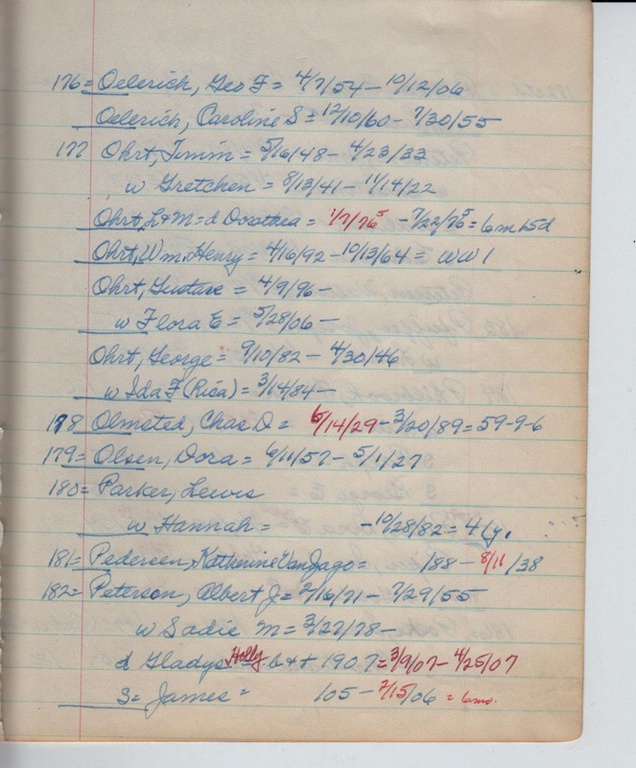 176= Oelerich, Geo F = 4/7/54 - 10/12/06
Oelerich, Caroline S = 12/10/60 - 7/30/55
177 Ohrt, Timm = 5/16/48 - 4/23/33
w Gretchen = 8/13/41 - 11/14/22
Ohrt, L & M = d Dorothea = 1/7/76⁵ - 7/22/76⁵ = 6m 15d
Ohrt, Wm. Henry = 4/16/92 - 10/13/64 = WW 1
Ohrt, Gustave = 4/9/96 -
w Flora E = 5/28/06 -
Ohrt, George = 9/10/82 - 4/30/46
w Ida F (Risa) = 3/14/84 -
178 Olmsted, Chas D = 6/14/29 - 3/20/89 = 59-9-6
179= Olsen, Dora = 6/11/57 - 5/1/27
180= Parker, Lewis
w Hannah = - 10/28/82 = 41y.
181= Pedersen, Katherine VanJago = /88 - 8/11/38
182= Peterson, Albert J = 2/16/71 - 7/29/55
w Sadie M = 3/27/78 -
d Gladys Holly = b + t 1907 = 3/9/07 - 4/25/07
S = James = /05 - 2/15/06 = 6mo.